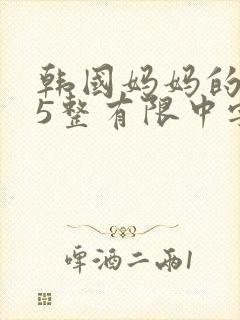 韩國妈妈的
5整有限中字
啤酒二兩1